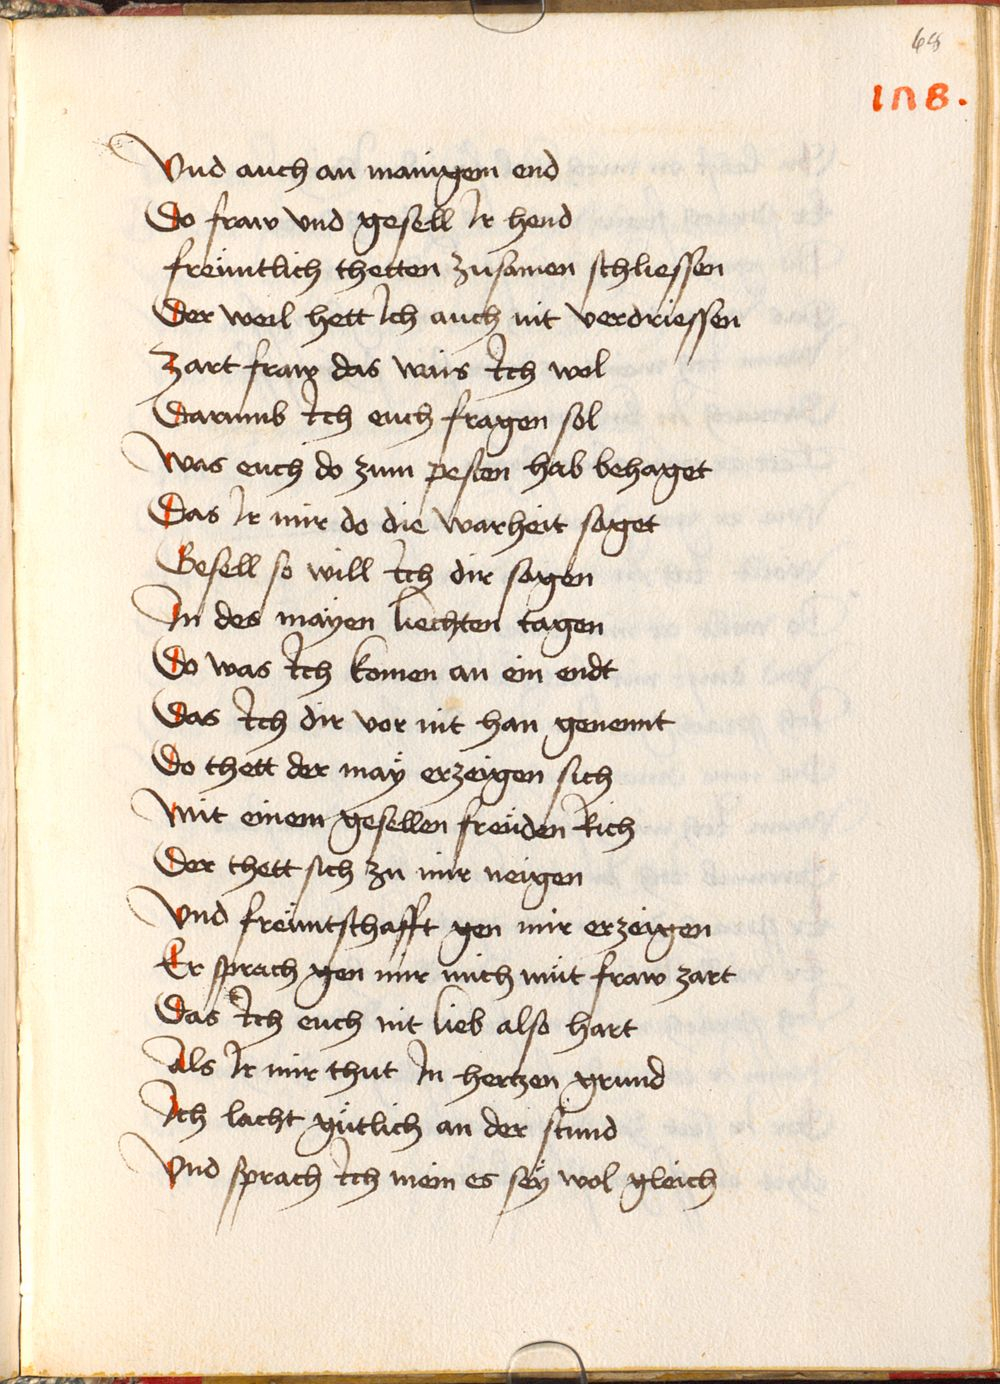 68
1π8.
Vnd auch an manigem end
Do fraw vnd gesell Ir hend
freüntlich thetten zusamen schliessen
Der weil hett Ich auch nit verdriessen
Zart fraw das wais Ich wol
Darumb Ich euch fragen sol
Was euch do zum pesten hab behaget
Das Ir mir do die warheit saget
Gesell so will Ich dir sagen
In des mayen liechten tagen
Do was Ich komen an ein endt
Das Ich dir vor nit han genennt
Do thett der maÿ erzeigen sich
Mit einem gesellen freüden Rich
Der thett sich zu mir neigen
Vnd freüntschafft gen mir erzeigen
Er sprach gen mir mich müt fraw zart
Das Ich euch nit lieb also hart
Als Ir mir thut In hertzen grund
Ich lacht gütlich an der stund
Vnd sprach Ich mein es seÿ wol gleich